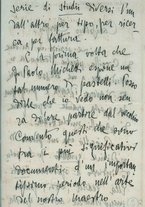 serie di studii diversi l'un
dall'altro per tipo, per ricer-
ca per fattura.
È la prima volta che
Paolo Michetti espone un
tal numero di pastelli. Posso
dire che io vedo non sen-
za dolore partire dal vecchio
Convento questi che sono
tra i più significativi
documenti d'un importan-
tissimo periodo nell'arte
del nostro maestro